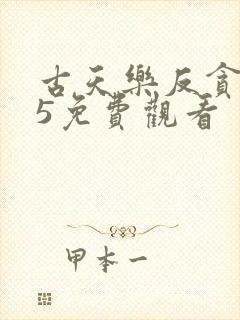 古天樂反貪
5免費觀看
甲本一